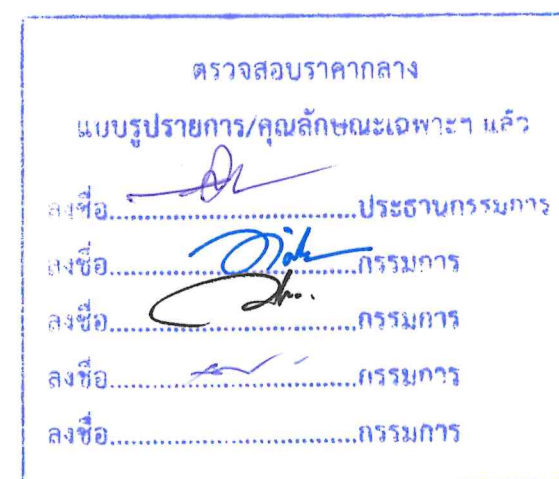 ตรวจสอบราคากลาง
แบบรูปรายการ/คุณลักษณะเฉพาะฯ แล้ว
ลงชื่อ....................................ประธานกรรมการ
ลงชื่อ....................................กรรมการ
ลงชื่อ....................................กรรมการ
ลงชื่อ....................................กรรมการ
ลงชื่อ....................................กรรมการ